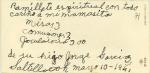 Ramillete espiritual con todo
cariño a mi mamasita
Misas 3
Comuniones 3
Jaculatorias 300
de su hijo Jorge Garcia
Saltillo Coah mayo 10-1941